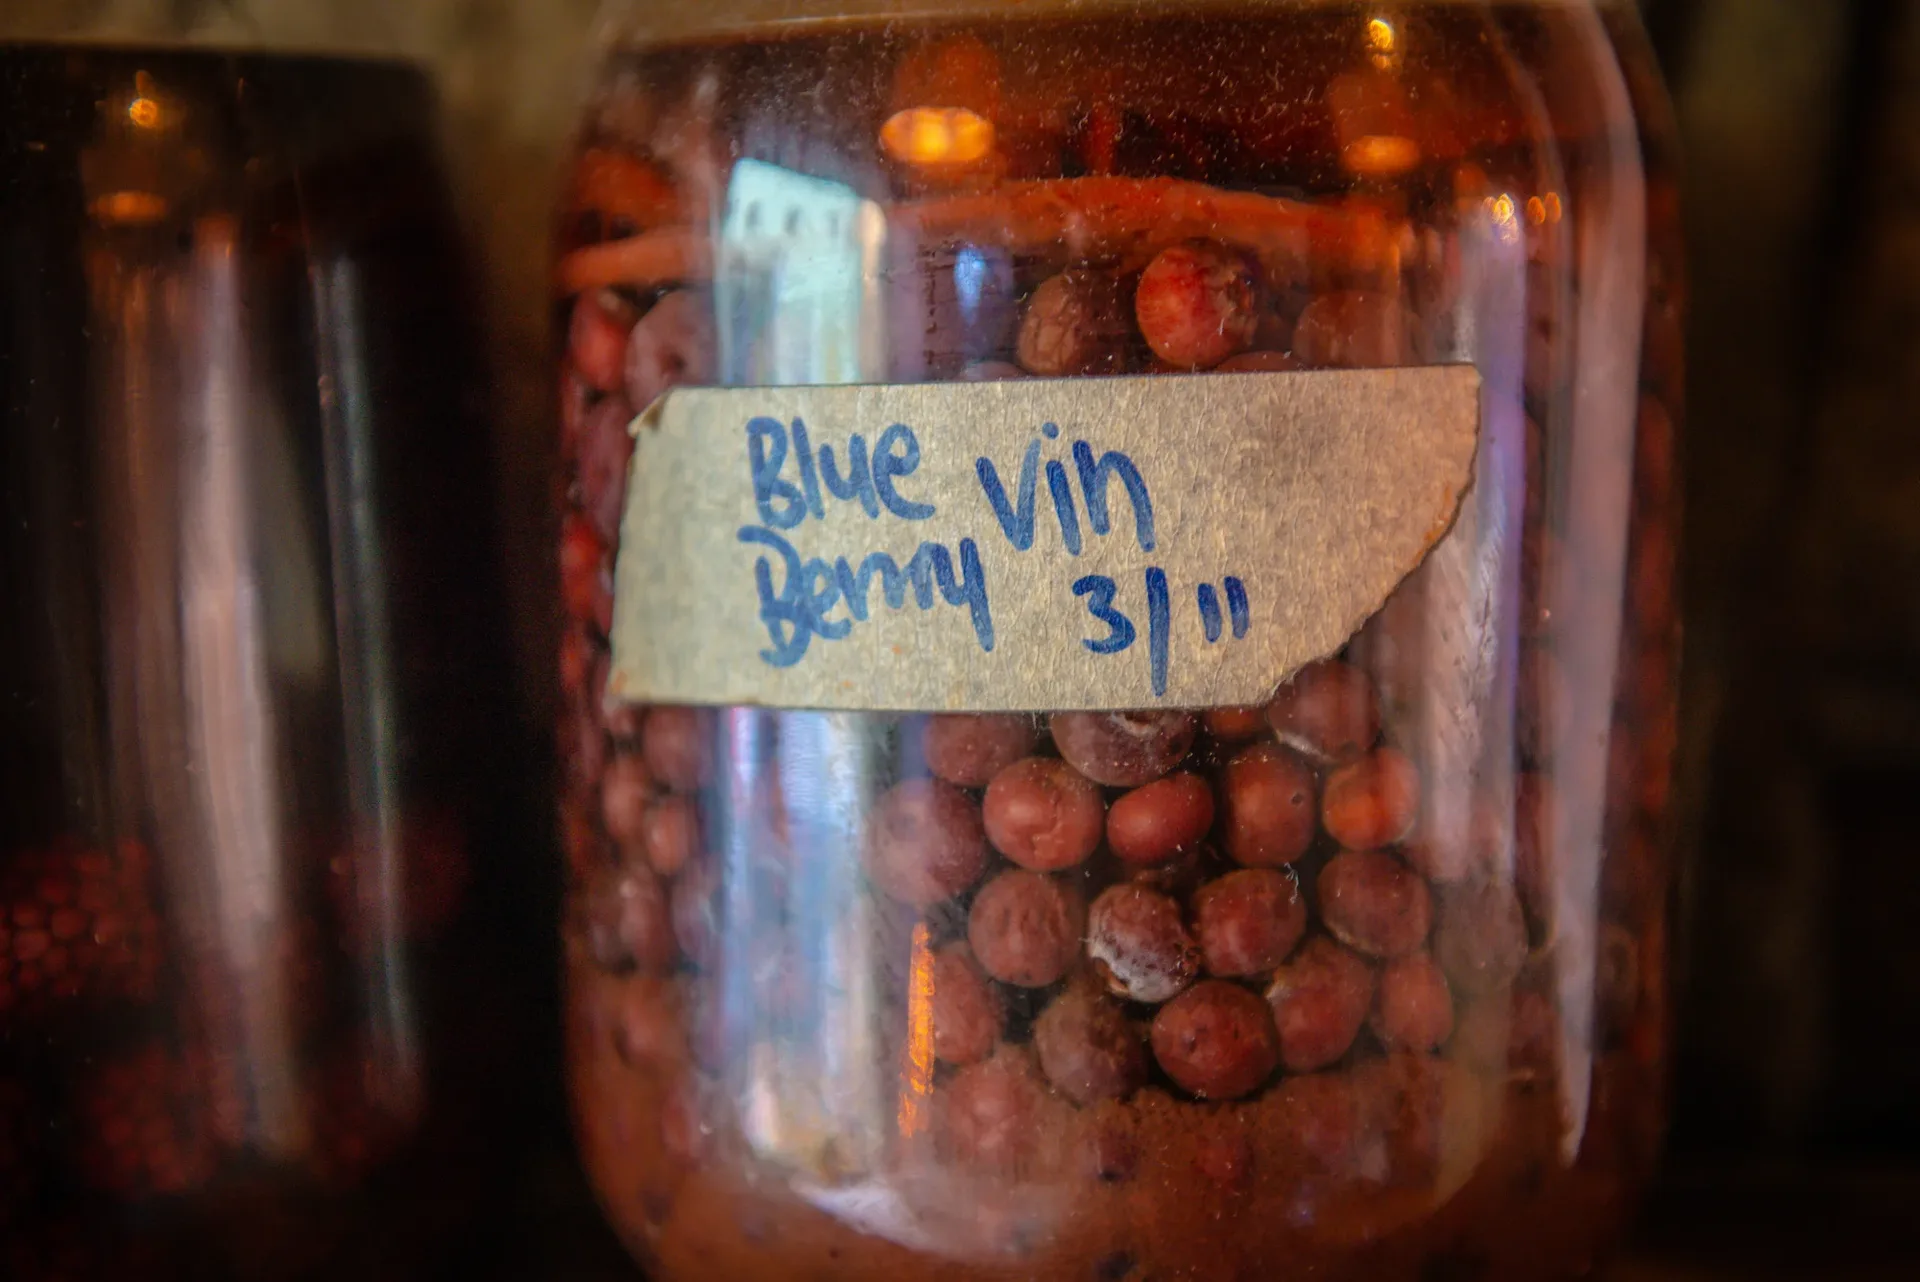 Blue
Berry
Vin
3/11